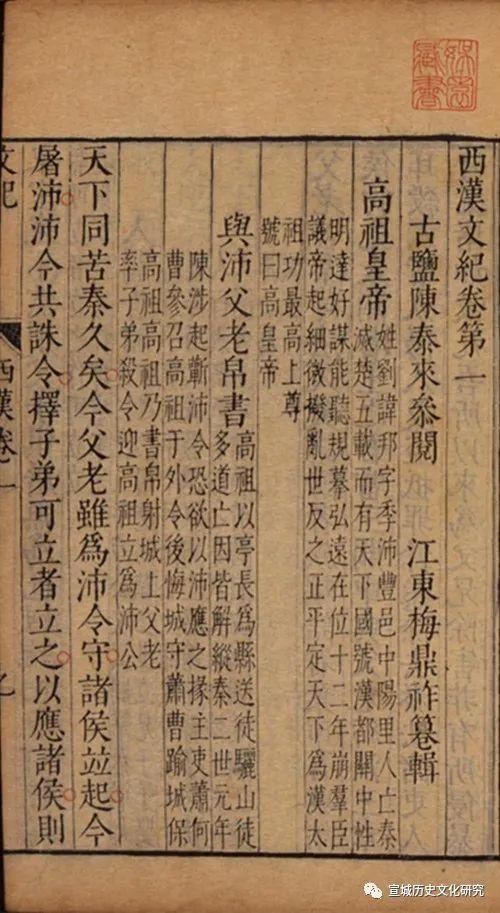 娛園藏書
西漢文紀卷第一
古鹽陳泰來叅閱 江東梅鼎祚纂輯
高祖皇帝 姓劉諱邦字季沛豐邑中陽里人亡秦
滅楚五載而有天下國號漢都關中性
明達好謀能聽規摹弘遠在位十二年崩羣臣
議帝起細微撥亂世反之正平定天下為漢太
祖功最高上尊
號曰高皇帝
與沛父老帛書 高祖以亭長為縣送徒驪山徒
多道亡因皆解縱秦二世元年
陳涉起蘄沛令恐欲以沛應之掾主吏蕭何
曹參召高祖于外令後悔城守蕭曹踰城保
高祖高祖乃書帛射城上父老
率子弟殺令迎高祖立為沛公
天下同苦秦久矣今父老雖爲沛令守諸侯竝起今
屠沛沛令共誅令擇子弟可立者立之以應諸侯則
文紀 西漢卷一
宣城历史文化研究